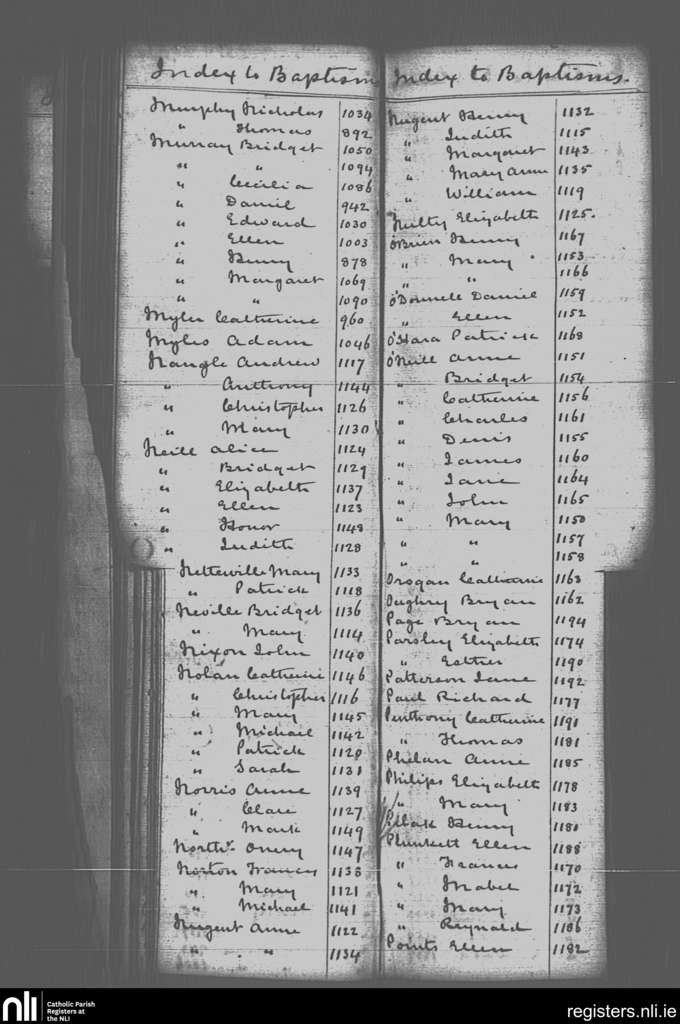 Index to Baptism
Murphy Nicholas 1034
" Thomas 892
Murray Bridget 1050
" " 1094
" Cecilia 1086
" Daniel 942
" Edward 1030
" Ellen 1003
" Henry 878
" Margaret 1069
" " 1090
Myler Catherine 960
Myles Adam 1046
Nangle Andrew 1117
" Anthony 1144
" Christopher 1126
" Mary 1130
Neill Alice 1124
" Bridget 1129
" Elizabeth 1137
" Ellen 1123
" Honor 1148
" Judith 1128
Netterville Mary 1133
" Patrick 1118
Neville Bridget 1136
" Mary 1114
Nixon John 1140
Nolan Catherine 1146
" Christopher 1116
" Mary 1145
" Michael 1142
" Patrick 1120
" Sarah 1131
Norris Anne 1139
" Clare 1127
" Mark 1149
North 1147
Norton Frances 1138
" Mary 1121
" Michael 1141
Nugent Anne 1122
" " 1134
Index to Baptisms.
Nugent Henry 1132
" Judith 1115
" Margaret 1143
" Mary Anne 1135
" William 1119
Nulty Elizabeth 1125.
O'Brien Henry 1167
" Mary 1153
" " 1166
O'Donnell Daniel 1159
" Ellen 1152
O'Hara Patrick 1168
O'Neill Anne 1151
" Bridget 1154
" Catherine 1156
" Charles 1161
" Denis 1155
" James 1160
" Jane 1164
" John 1165
" Mary 1150
" " 1157
" " 1158
Orogan Catharine 1163
Oughry Bryan 1162
Page Bryan 1194
Parsley Elizabeth 1174
" Esther 1190
Patterson Jane 1192
Paul Richard 1177
Penthony Catherine 1191
" Thomas 1181
Phelan Anne 1185
Philips Elizabeth 1178
" Mary 1183
Henry 1180
Plunkett Ellen 1188
" Frances 1170
" Mabel 1172
" Mary 1173
" Reynald 1186
Points Ellen 1182
nli
Catholic Parish
Registers at
the NLI
registers.nli.ie